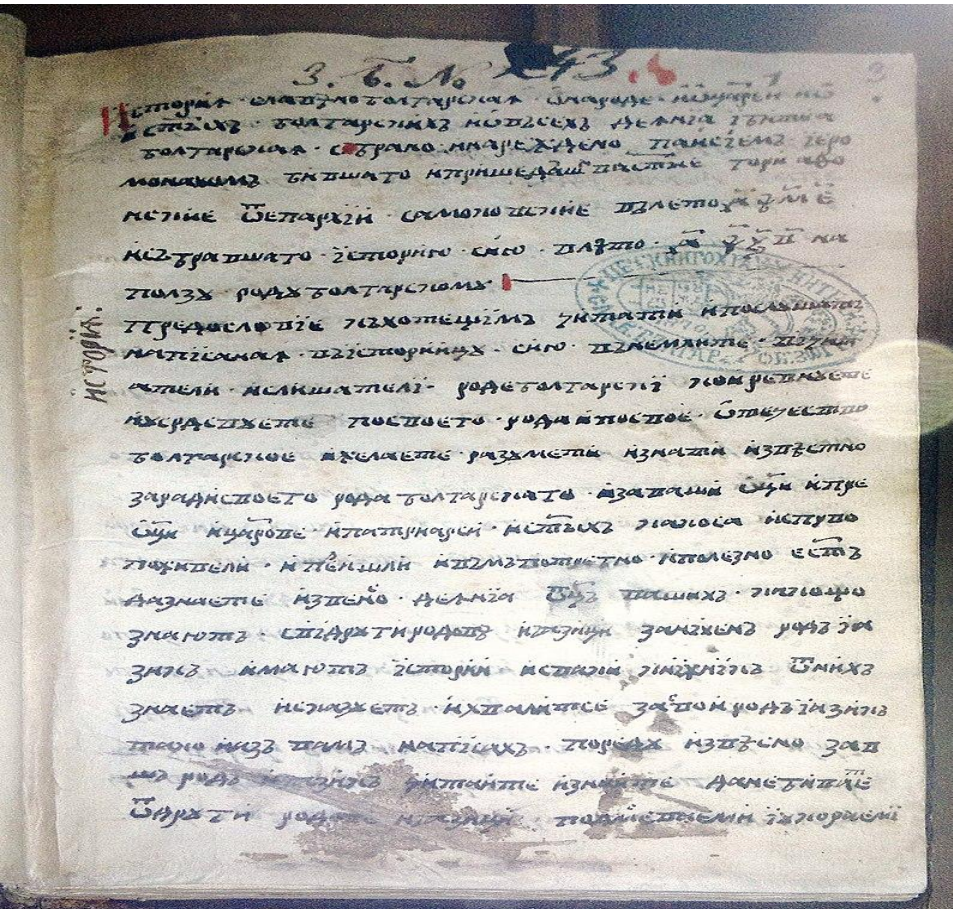 З. Б. № 43
Исторіѧ славѣноболгарскаѧ ѿнароде и ѿцареи и ѿ
ст҃ыхъ болгарскихъ и ѿвсехъ деѧніа і битіа
болгарскаѧ събрано и нареждено паисіемъ іеро
монахомъ бившаго и пришедша ст҃ие гори аѳо
нские ѿепархїи самоковские въ лето ҂аѱме
и събравшаго їсторию сию въ лѣто ҂аѱѯв на
ползу роду болгарскому
Предословїе къ хотещимъ читати и послушати
написанаѧ въ їсторїицу сию внемлите
атели и слишатели роде болгарски кои ревнуете
и усердствуете по своего рода и по свое ѿтечество
болгарское и желаете разумети и знати извѣстно
заради своего рода болгарскаго и за ваши ѿци и пре
ѿци и царове и патриарси и ст҃ыхъ какоса испуво
поживели и вамъ потретно и полезно ест҃ъ
да знаете извесно деѧнїа ѿцъ вашихъ какощо
знаютъ сви други родове и ѧзици за нихенъ родъ іа
зикъ имаютъ їсторїи и сваки книжникъ ѿнихъ
знаетъ и сказуетъ и хвалитсе за свои родъ іазикъ
тако и азъ вамъ написахъ пореду извѣсно за в
шъ родъ іезикъ читаите и знаите да не би вие
ѿ други родове и ѧзици подсмеваеми и укораеми
ИСТОРЇѦ